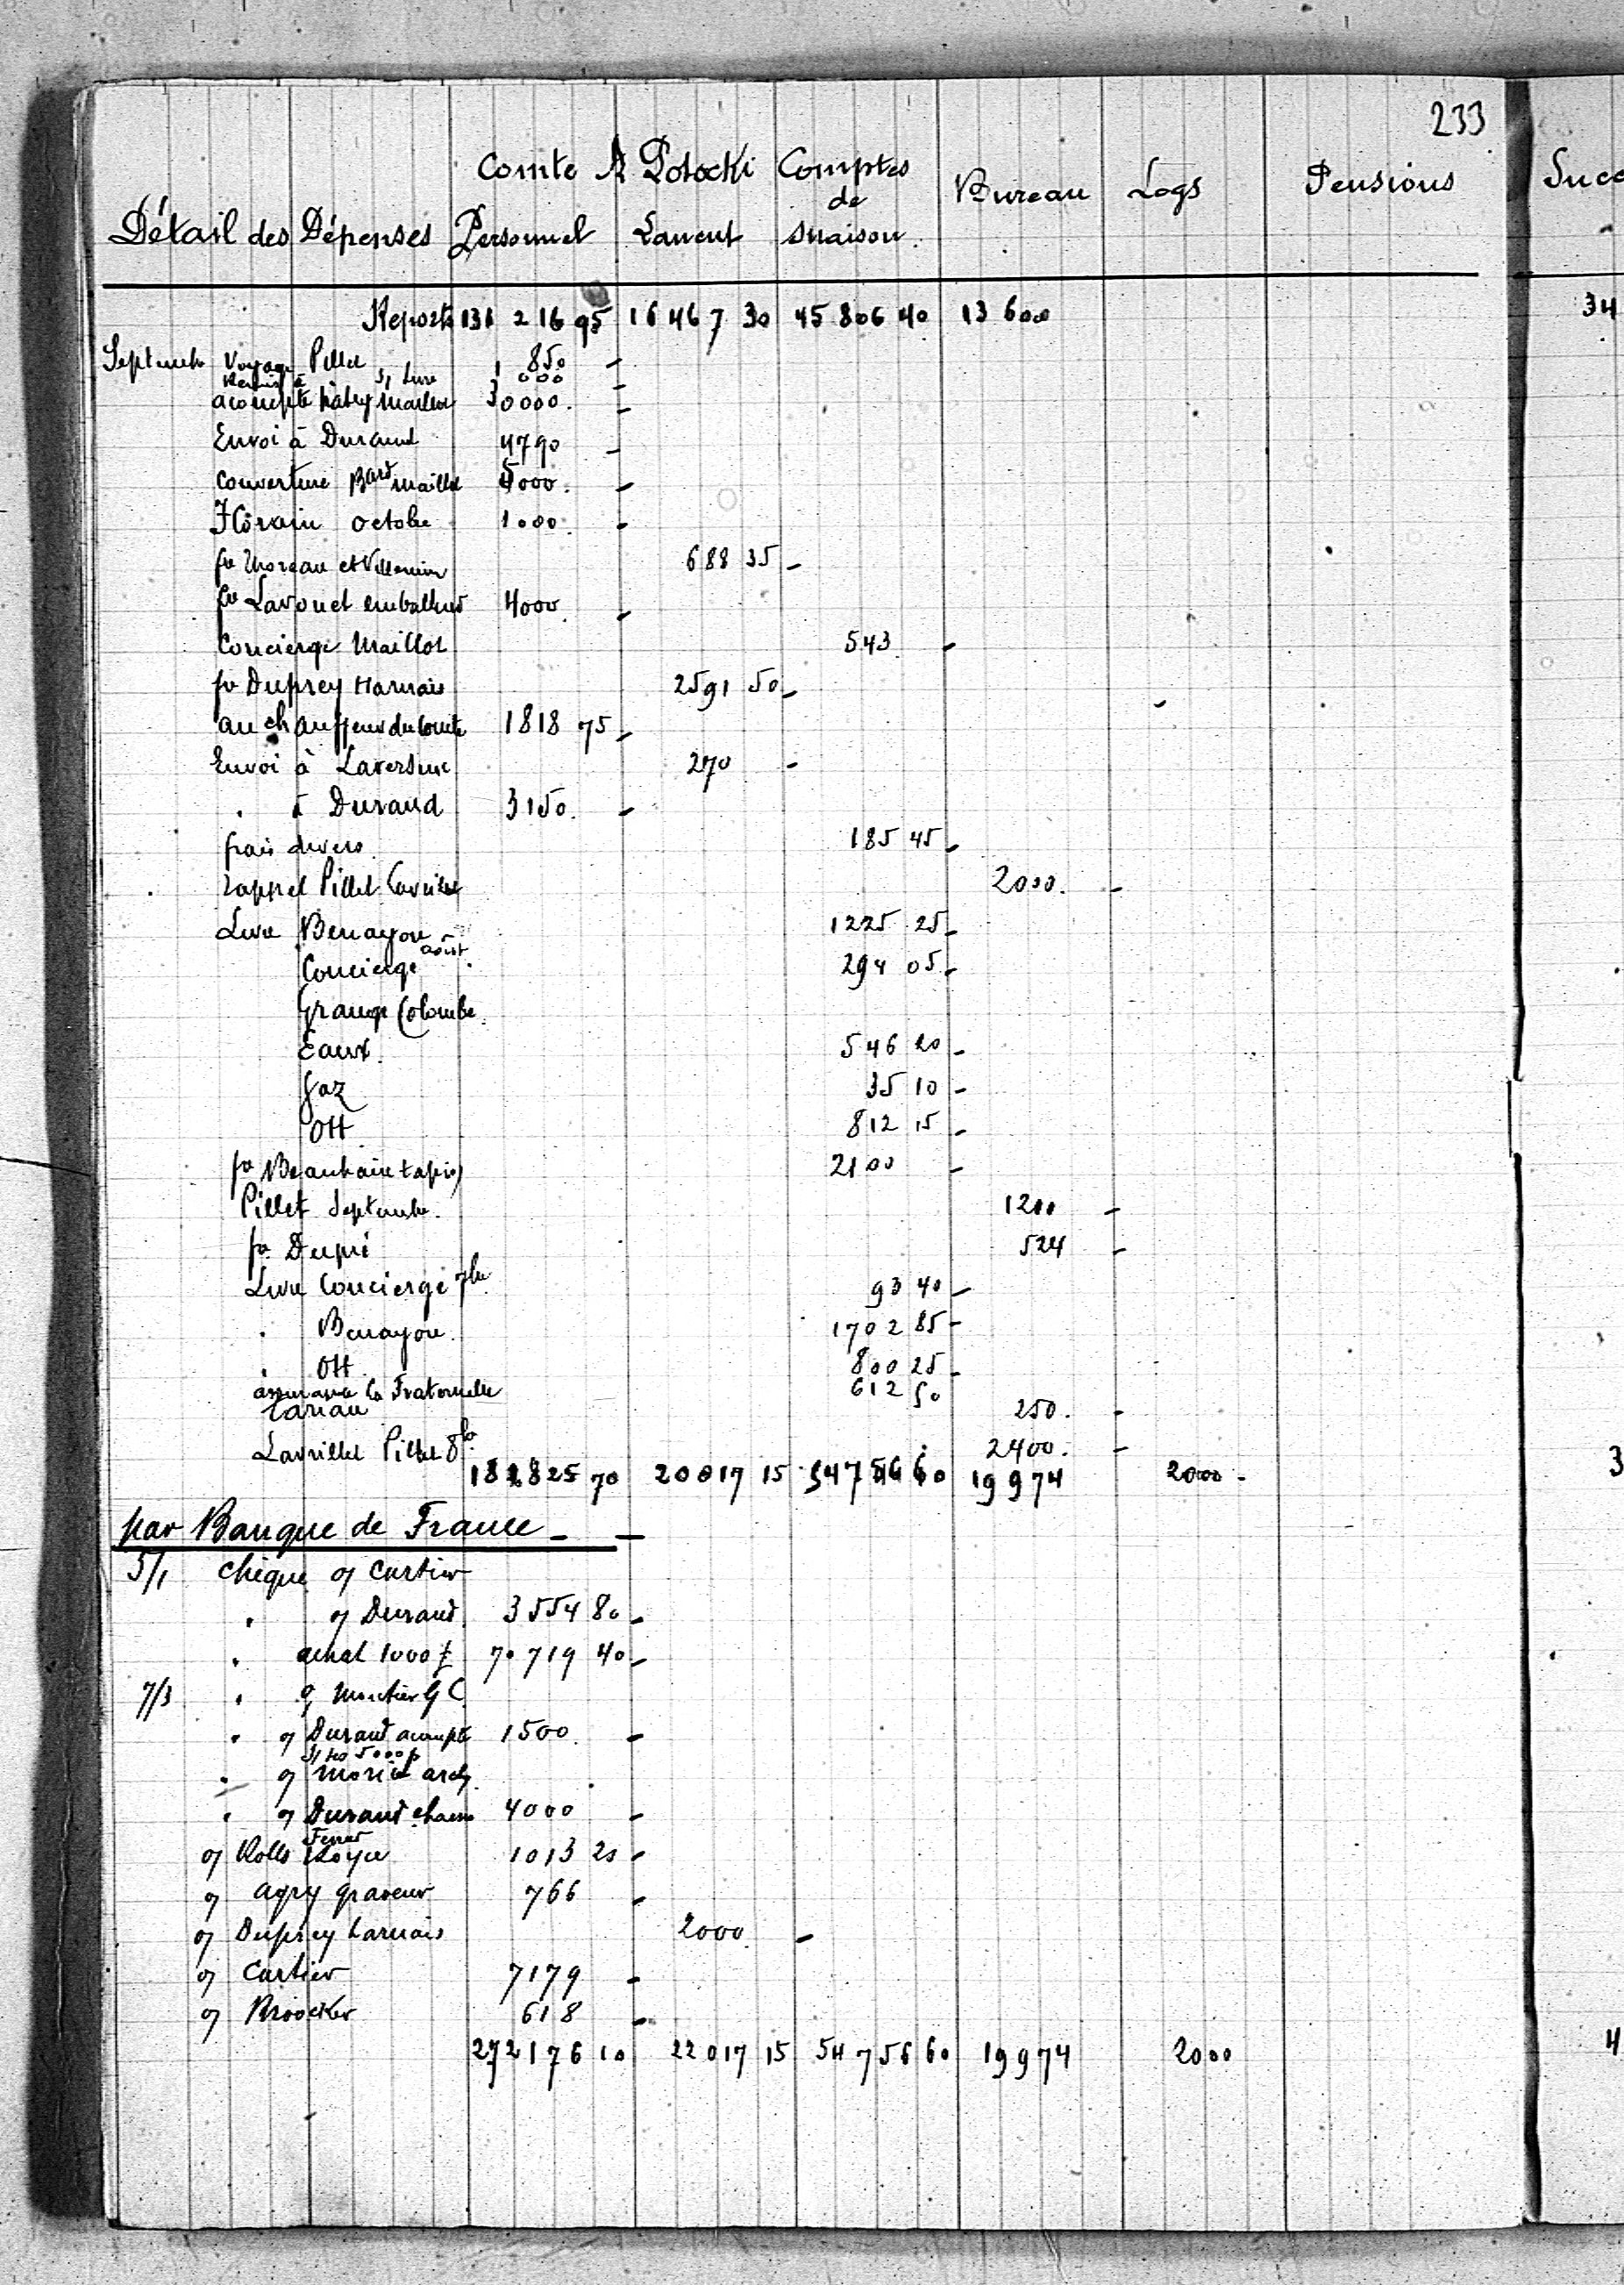 233
Comte A Potocki Comptes de maison Bureau Legs Pensions Succ
Détail des Dépenses Personnel Laneut
Reports 131 216 95 16 467 30 45 806 40 13 600 34
Septembre Voyage Pillet 850 -
Remis à s/ Livre 1 000 -
acompte Patry Maillot 30000. -
Envoi à Durand 4790 -
Couverture Bard Maillot 5000. -
Florain octobre 1000. -
fre Moreau et Villemin 688 35 -
fre Lavouet emballeur 4000. -
Concierge Maillot 543 -
fre Duprey Harnais 2591 50 -
au chauffeur du Comte 1818 75 -
Envoi à Laversine 270 -
" à Durand 3150. -
frais divers 185 45 -
rappel Pillet Lavrillet 2000. -
Livre Benayon 1225 25 -
Concierge août 294 05 -
Grange Colombe
Eaux 546 20 -
Gaz 35 10 -
Ott 812 15 -
fre Beauhaire tapis 2100 -
Pillet Septembre. 1200 -
fre Dupré 524 -
Livre Concierge 7bre 93 40 -
" Benayon. 1702 85 -
" Ott 800 25 -
assurance la Fraternelle 612 50
Tariau 250. -
Lavrillet Pillet 8bre 2400. -
182825 70 20017 15 54756 60 19974 2000 - 3
par Banque de France - -
5/1 chèque o/ Cartier
" o/ Durand 3554 80 -
" achat 1000 £ 70 719 40 -
7/3 " o/ Moutier G C
" o/ Durand acompte 1500. -
s/ les 5000 f
" o/ Morice arch.
" o/ Durand chasse 4000 -
o/ Rolls Royce 1013 20 -
o/ Agry graveur 766 -
o/ Duprey harnais 2000. -
o/ Cartier 7179 -
o/ Broocker 618 -
272176 10 22017 15 54756 60 19974 2000 4